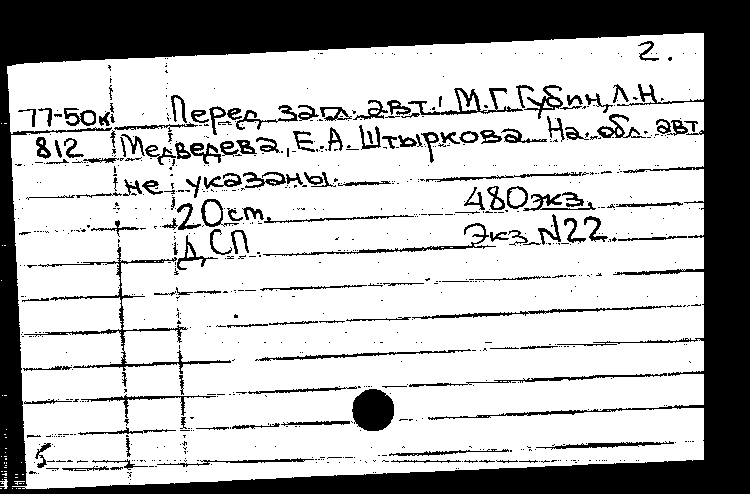 2.
77-50к Перед загл. авт.: М.Г. Губин, Л.Н.
812 Медведева, Е.А. Штыркова. На обл. авт.
не указаны.
20 ст. 480 экз.
ДСП Экз N22
5